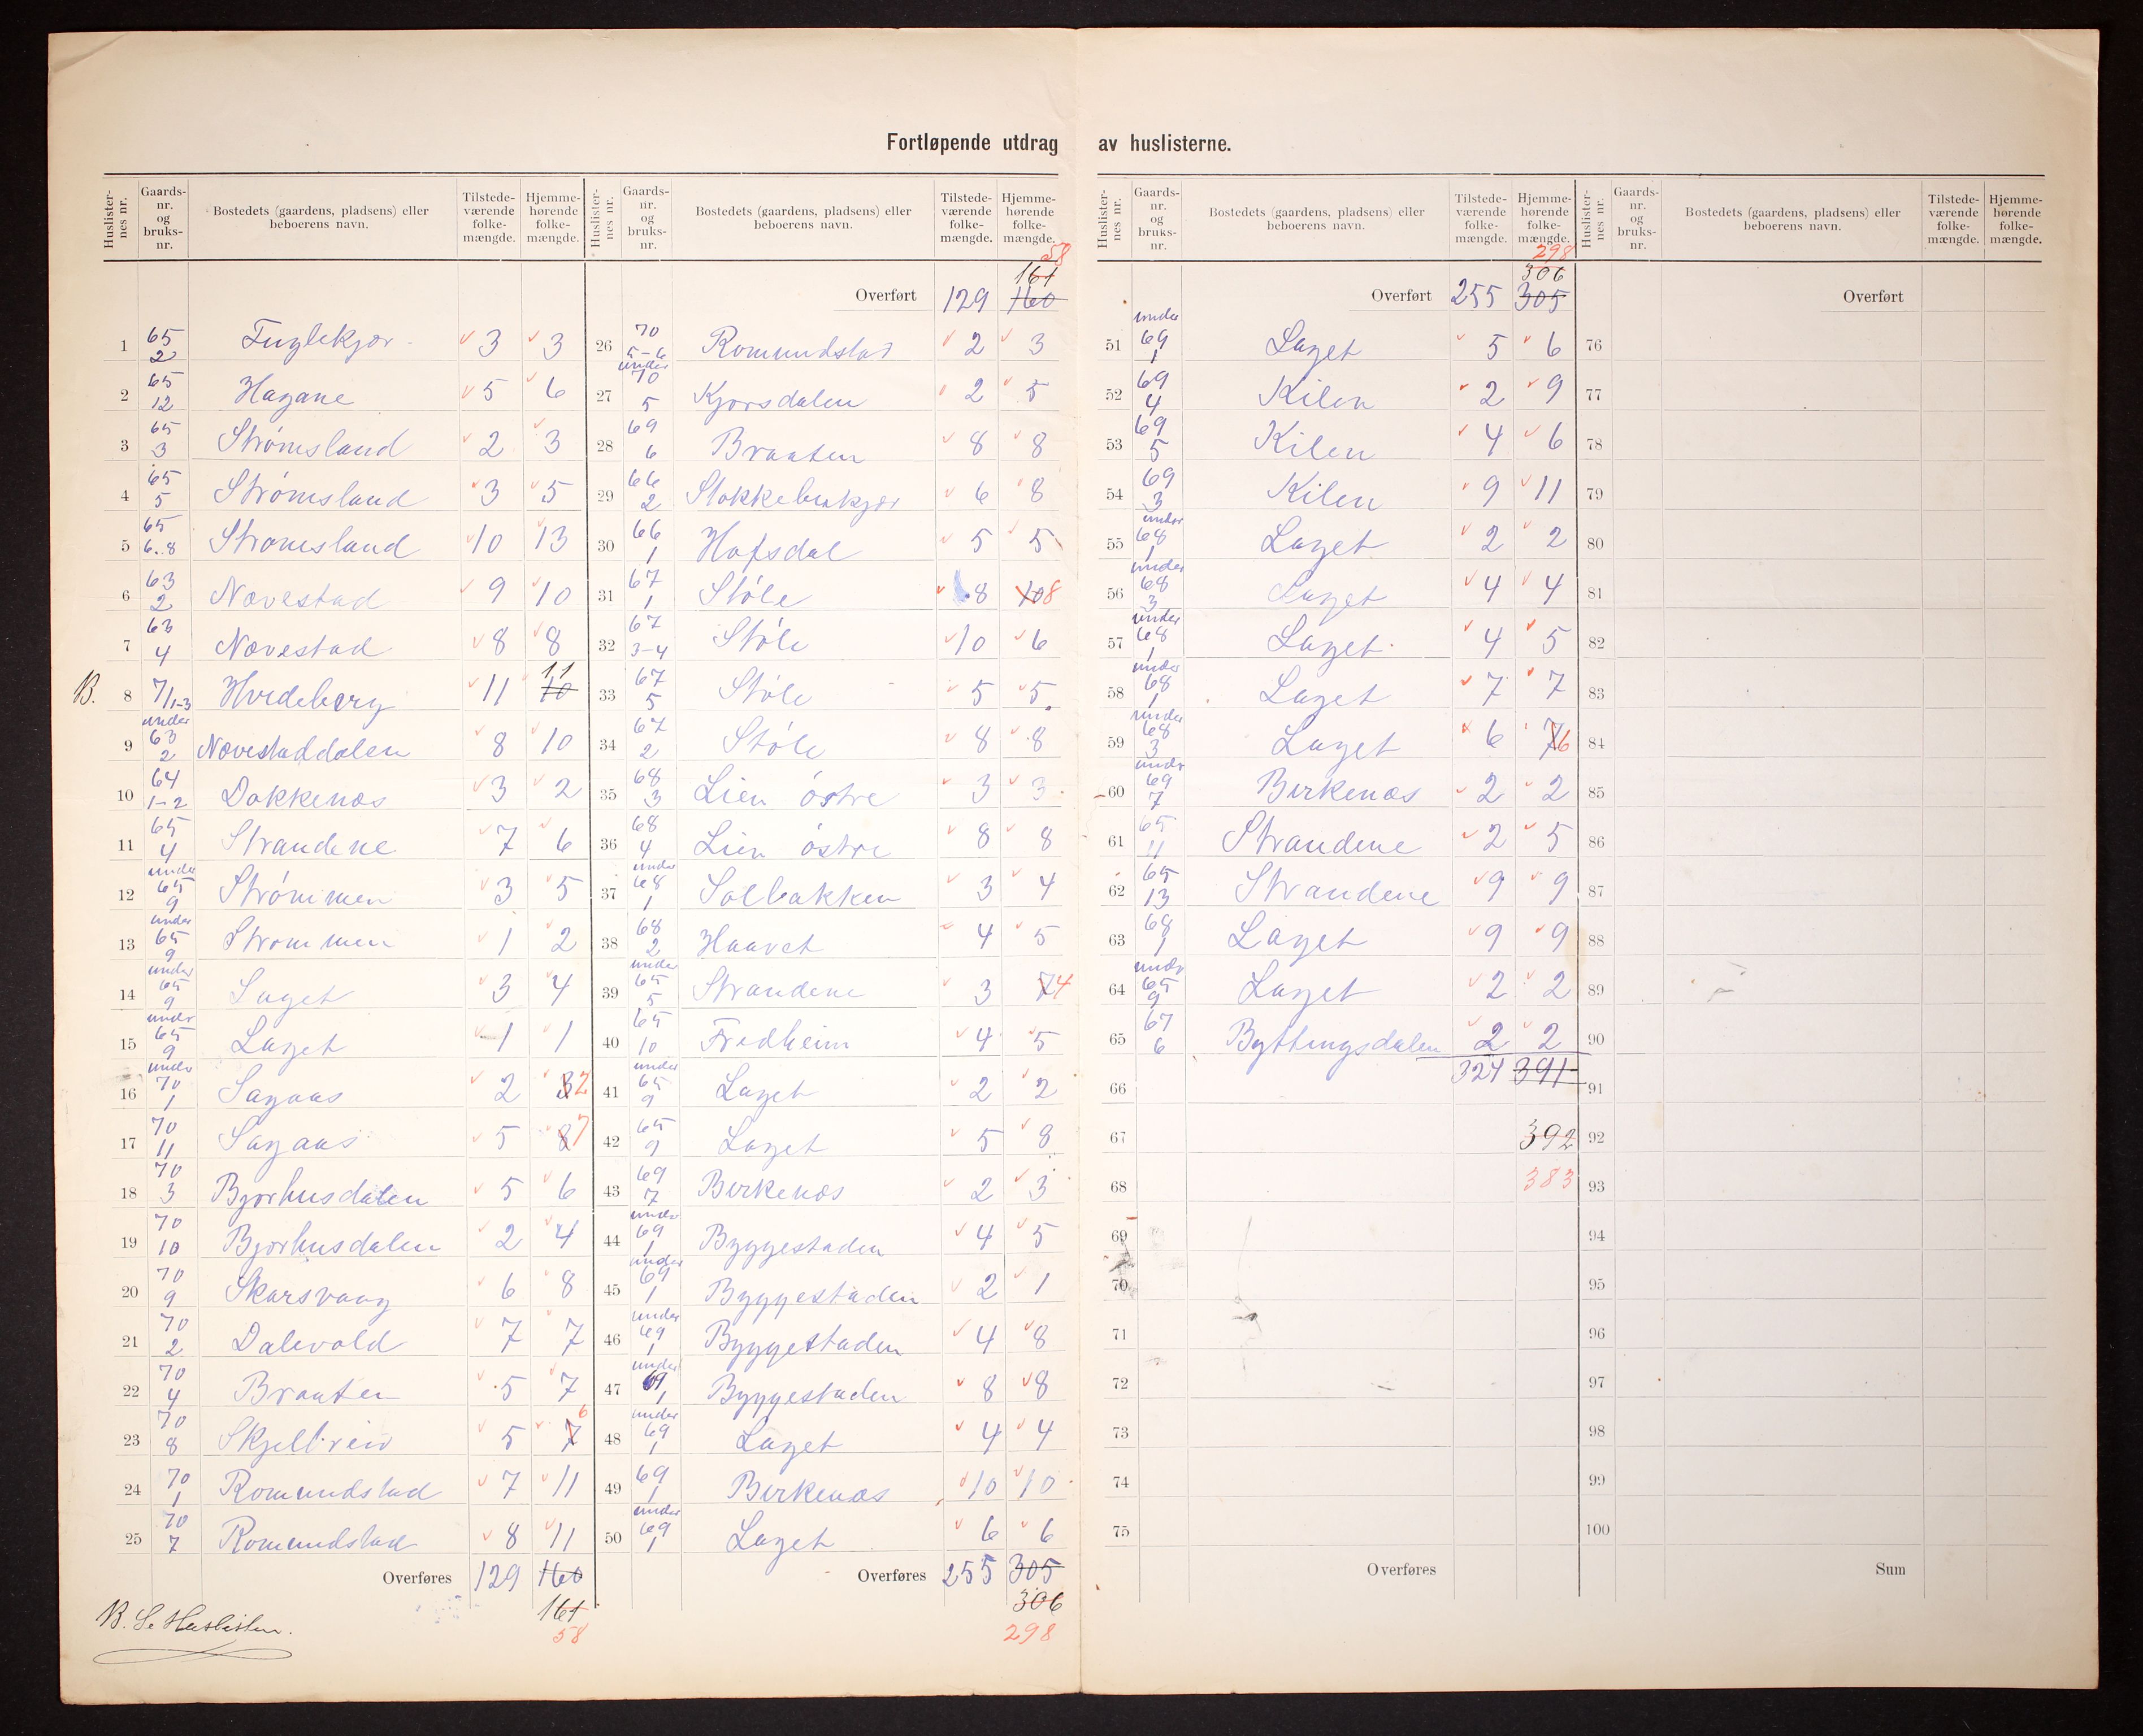 Fortløpende utdrag av huslisterne.
Huslister- nes nr. Gaards- nr. og bruks- nr. Bostedets (gaardens, pladsens) eller beboerens navn. Tilstede- værende folke- mængde. Hjemme- hørende folke- mængde.
1 65 2 Fuglekjær 3 3
2 65 12 Hagane 5 6
3 65 3 Strømsland 2 3
4 65 5 Strømsland 3 5
5 65 6.8 Strømsland 10 13
6 63 2 Nævestad 9 10
7 63 4 Nævestad 8 8
B. 8 71/1-3 Hvideberg 11 10 11
9 under 63 2 Nævestaddalen 8 10
10 64 1-2 Dokkenæs 3 2
11 65 4 Strandene 7 6
12 under 65 9 Strømmen 3 5
13 under 65 9 Strømmen 1 2
14 under 65 9 Laget 3 4
15 under 65 9 Laget 1 1
16 under 70 1 Sagaas 2 3 2
17 70 11 Sagaas 5 8 7
18 70 3 Bjørhusdalen 5 6
19 70 10 Bjørhusdalen 2 4
20 70 9 Skarsvaag 6 8
21 70 2 Dalevold 7 7
22 70 4 Braaten 5 7
23 70 8 Skjelbreid 5 7 6
24 70 1 Romundstad 7 11
25 70 7 Romundstad 8 11
Overføres 129 160
161
58
B. Se Huslisten.
Huslister- nes nr. Gaards- nr. og bruks- nr. Bostedets (gaardens, pladsens) eller beboerens navn. Tilstede- værende folke- mængde. Hjemme- hørende folke- mængde.
58
161
Overført 129 160
26 70 5-6 Romundstad 2 3
27 under 70 5 Kjørsdalen 2 5
28 69 6 Braaten 8 8
29 66 2 Stokkebukjær 6 8
30 66 1 Hofsdal 5 5
31 67 1 Støle 8 10 8
32 67 3-4 Støle 10 6
33 67 5 Støle 5 5
34 67 2 Støle 8 8
35 68 3 Lien østre 3 3
36 68 4 Lien østre 8 8
37 under 68 1 Solbakken 3 4
38 68 2 Haavet 4 5
39 under 65 5 Strandene 3 7 4
40 65 10 Fredheim 4 5
41 under 65 9 Laget 2 2
42 65 9 Laget 5 8
43 69 7 Birkenæs 2 3
44 under 69 1 Byggestaden 4 5
45 under 69 1 Byggestaden 2 1
46 under 69 1 Byggestaden 4 8
47 under 69 1 Byggestaden 8 8
48 under 69 1 Laget 4 4
49 69 1 Birkenæs 10 10
50 under 69 1 Laget 6 6
Overføres 255 305
306
298
Huslister- nes nr. Gaards- nr. og bruks- nr. Bostedets (gaardens, pladsens) eller beboerens navn. Tilstede- værende folke- mængde. Hjemme- hørende folke- mængde.
298
306
Overført 255 305
51 under 69 1 Laget 5 6
52 69 4 Kilen 2 9
53 69 5 Kilen 4 6
54 69 3 Kilen 9 11
55 under 68 1 Laget 2 2
56 under 68 3 Laget 4 4
57 under 68 1 Laget 4 5
58 under 68 1 Laget 7 7
59 under 68 3 Laget 6 7 6
60 under 69 7 Birkenæs 2 2
61 65 11 Strandene 2 5
62 65 13 Strandene 9 9
63 68 1 Laget 9 9
64 under 65 9 Laget 2 2
65 67 6 Byttingsdalen 2 2
66 324 391
67 392
68 383
69
70
71
72
73
74
75
Overføres
Huslister- nes nr. Gaards- nr. og bruks- nr. Bostedets (gaardens, pladsens) eller beboerens navn. Tilstede- værende folke- mængde. Hjemme- hørende folke- mængde.
Overført
76
77
78
79
80
81
82
83
84
85
86
87
88
89
90
91
92
93
94
95
96
97
98
99
100
Sum